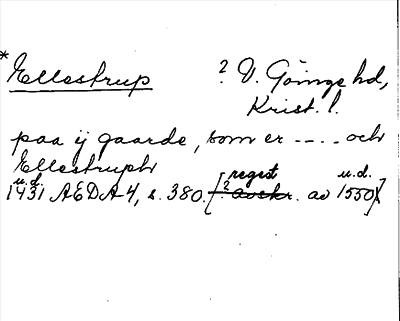 *Ellestrup ? V. Göinge hd,
Krist. l.
paa ij gaarde, som er ---- och
Ellestruph
u.d. regest u.d.
1431 AEDA 4, s. 380. [? avskr. av 1550]